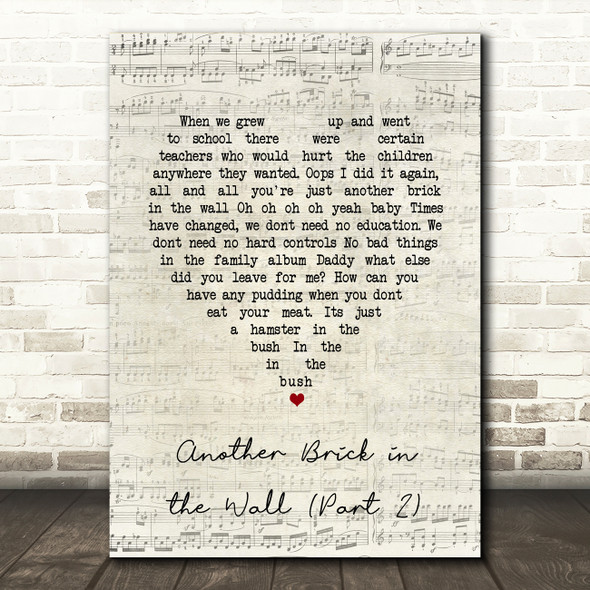 When we grew up and went
to school there were certain
teachers who would hurt the children
anywhere they wanted. Oops I did it again,
all and all you're just another brick
in the wall Oh oh oh oh yeah baby Times
have changed, we dont need no education. We
dont need no hard controls No bad things
in the family album Daddy what else
did you leave for me? How can you
have any pudding when you dont
eat your meat. Its just
a hamster in the
bush In the
in the
bush
Another Brick in
the Wall (Part 2)